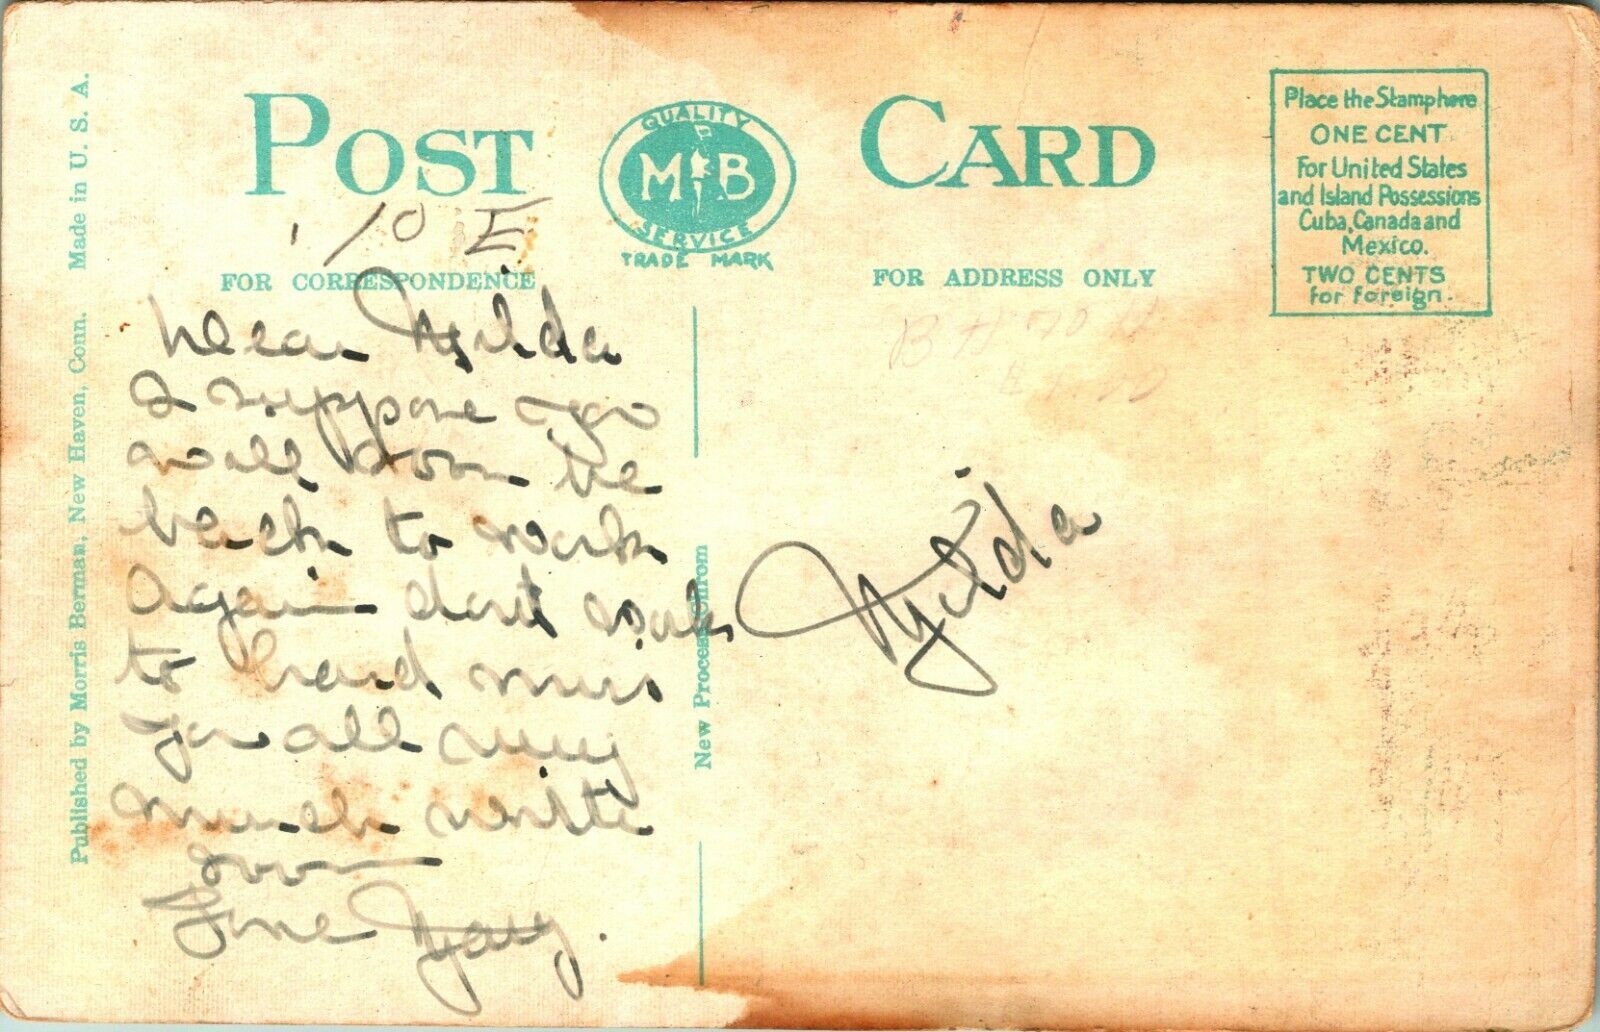 POST CARD
QUALITY
M B
SERVICE
TRADE MARK
10 E
FOR CORRESPONDENCE
FOR ADDRESS ONLY
Place the Stamp here
ONE CENT
For United States
and Island Possessions
Cuba, Canada and
Mexico.
TWO CENTS
for foreign.
Published by Morris Berman, New Haven, Conn. Made in U. S. A.
Dear Hilda
I suppose you
will soon be
back to work
Again dont work
to hard miss
you all very
much write
soon
Love
New Process Chrom
Hilda